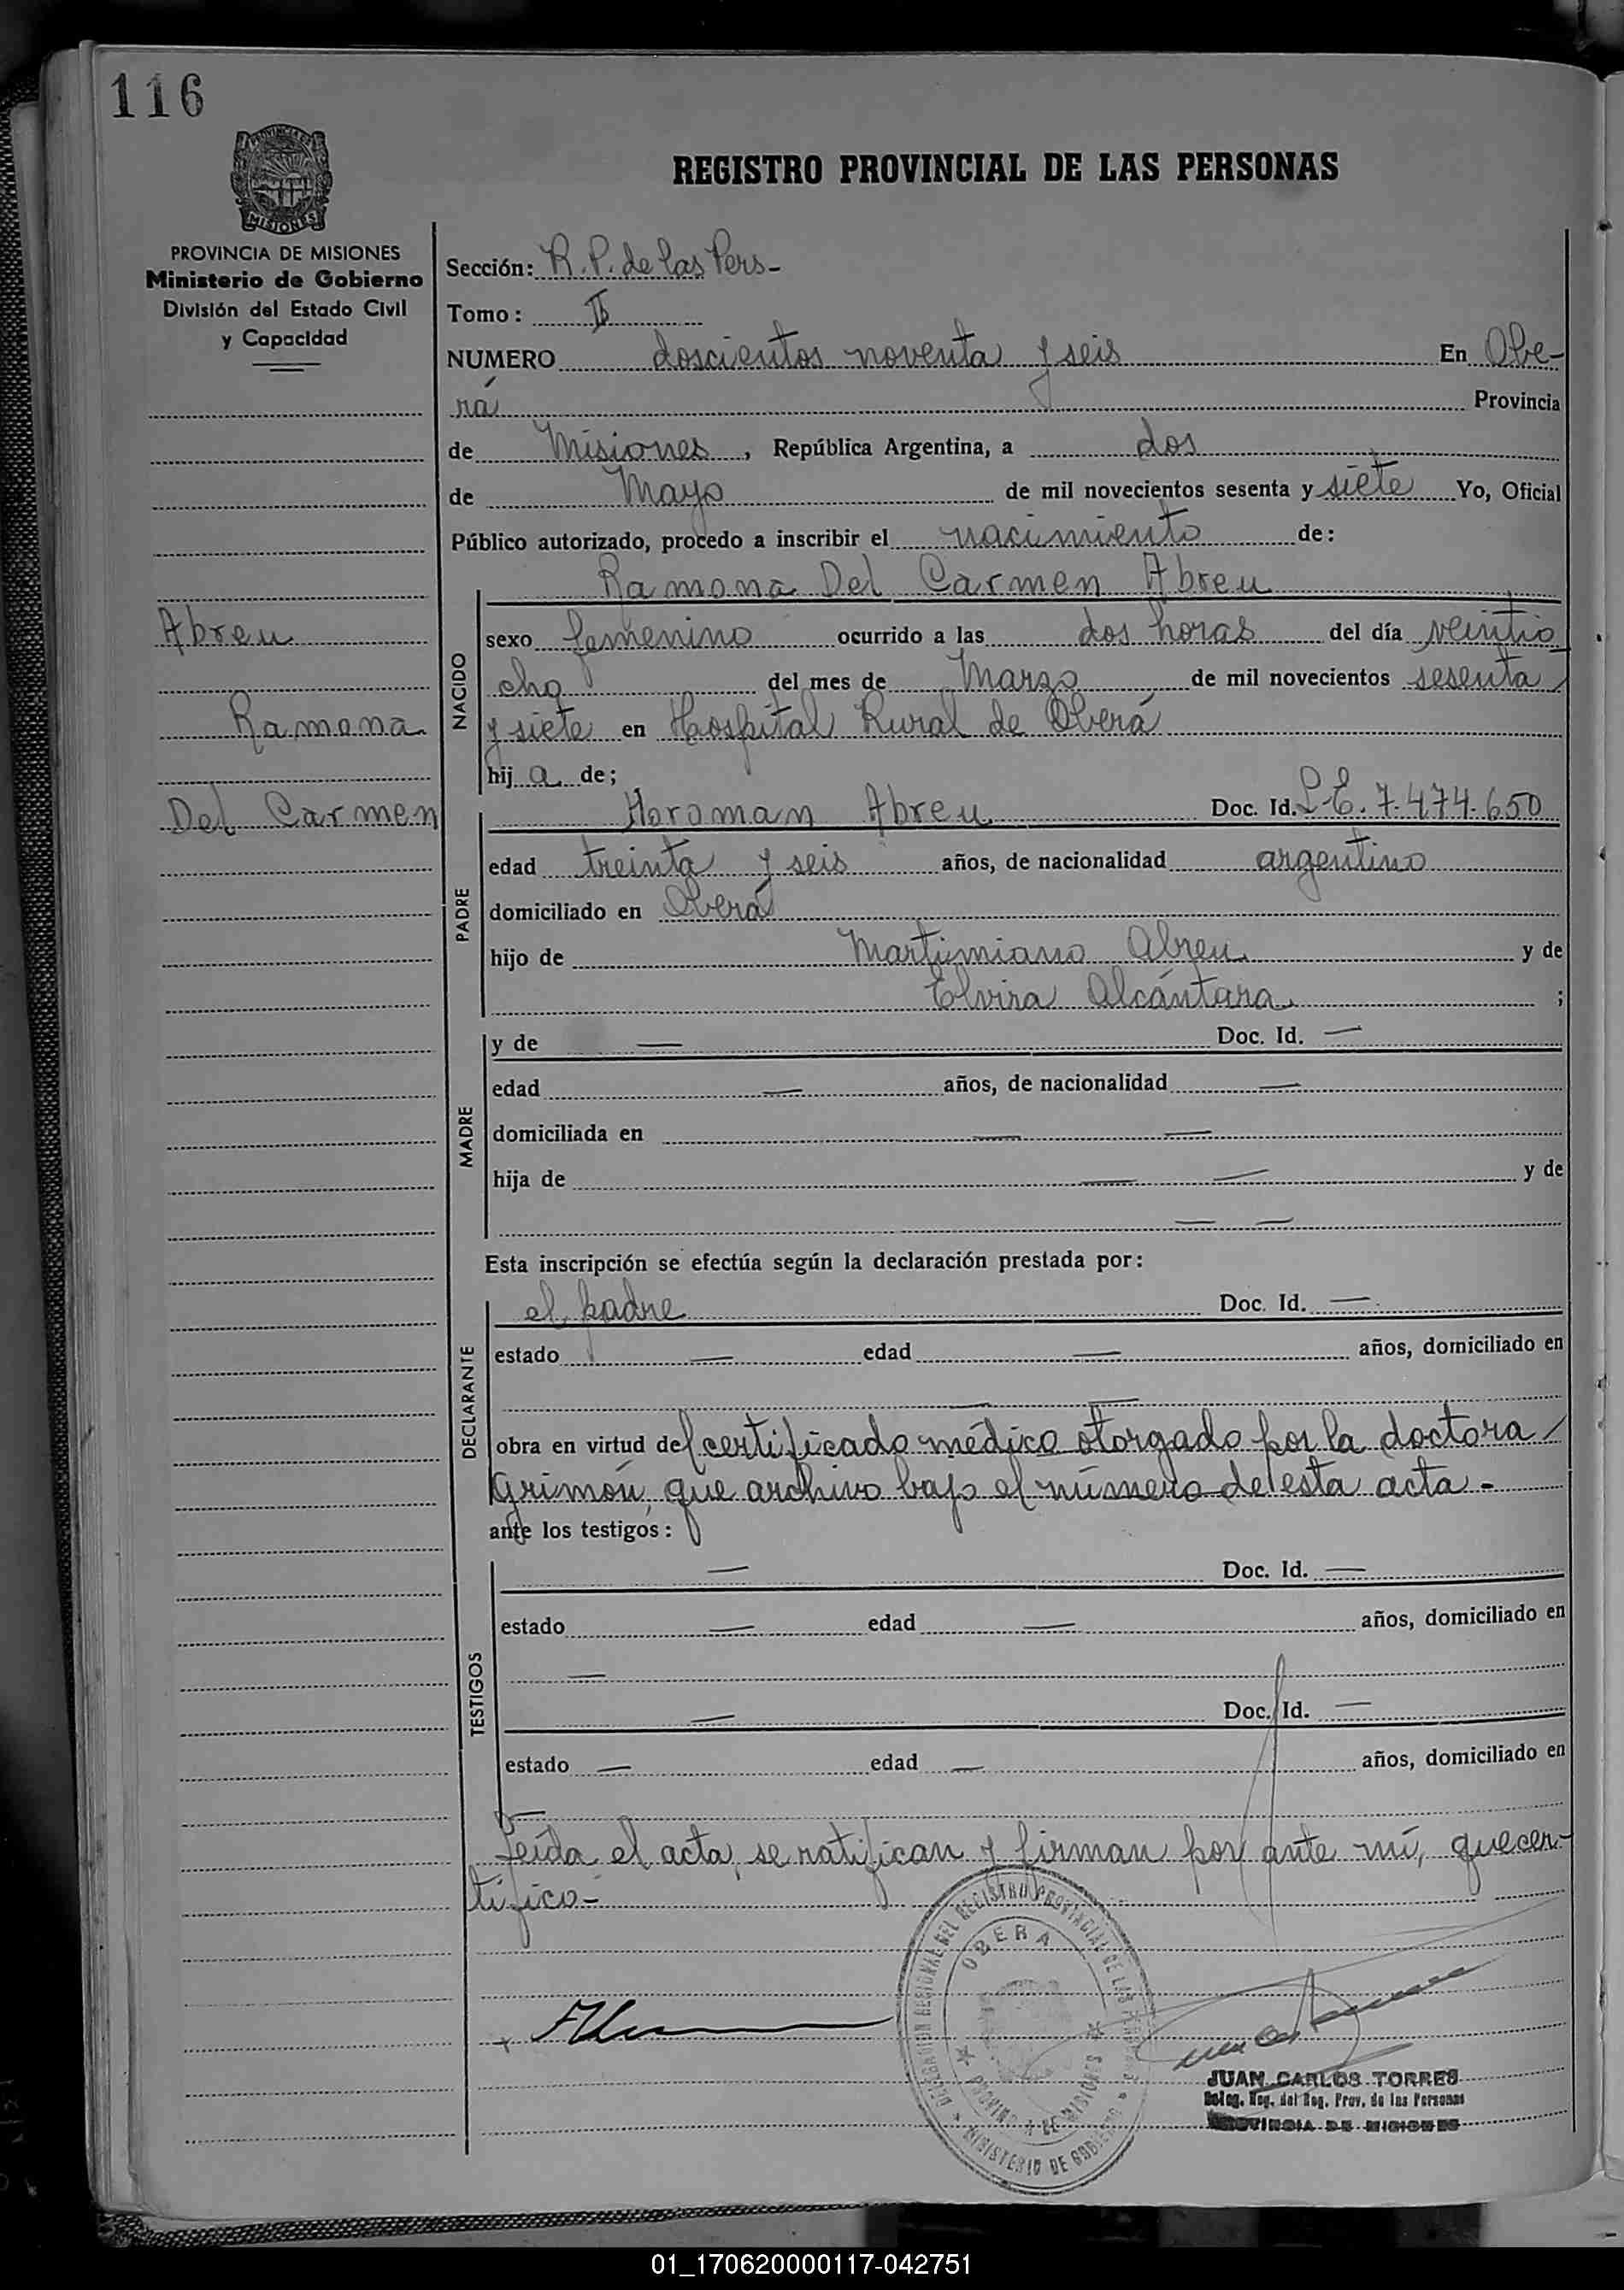 116
PROVINCIA DE
MISIONES
PROVINCIA DE MISIONES
Ministerio de Gobierno
División del Estado Civil
y Capacidad
Abreu
Ramona
Del Carmen
REGISTRO PROVINCIAL DE LAS PERSONAS
Sección: R. P. de las Pers-
Tomo: II
NUMERO doscientos noventa y seis En Obe-
rá Provincia
de Misiones, República Argentina, a dos
de Mayo de mil novecientos sesenta y siete Yo, Oficial
Público autorizado, procedo a inscribir el nacimiento de:
Ramona Del Carmen Abreu
NACIDO
sexo femenino ocurrido a las dos horas del día veintio
cho del mes de Marzo de mil novecientos sesenta
y siete en Hospital Rural de Oberá
hij a de;
PADRE
Horoman Abreu Doc. Id. L.E. 7.474.650
edad treinta y seis años, de nacionalidad argentino
domiciliado en Oberá
hijo de Martimiano Abreu y de
Elvira Alcántara ;
MADRE
y de — Doc. Id. —
edad — años, de nacionalidad —
domiciliada en — —
hija de — — y de
— —
Esta inscripción se efectúa según la declaración prestada por:
DECLARANTE
el padre Doc. Id. —
estado — edad — años, domiciliado en
— —
obra en virtud del certificado médico otorgado por la doctora
Grimón, que archivo bajo el número de esta acta -
ante los testigos:
TESTIGOS
— Doc. Id. —
estado — edad — años, domiciliado en
—
— Doc. Id. —
estado — edad — años, domiciliado en
—
Leída el acta, se ratifican y firman por ante mí, que cer-
tifico-
DELEGACION REGIONAL DEL REGISTRO PROVINCIAL DE LAS PERSONAS
OBERA
PROVINCIA DE MISIONES
MINISTERIO DE GOBIERNO
JUAN CARLOS TORRES
Deleg. Reg. del Reg. Prov. de las Personas
PROVINCIA DE MISIONES
01_170620000117-042751